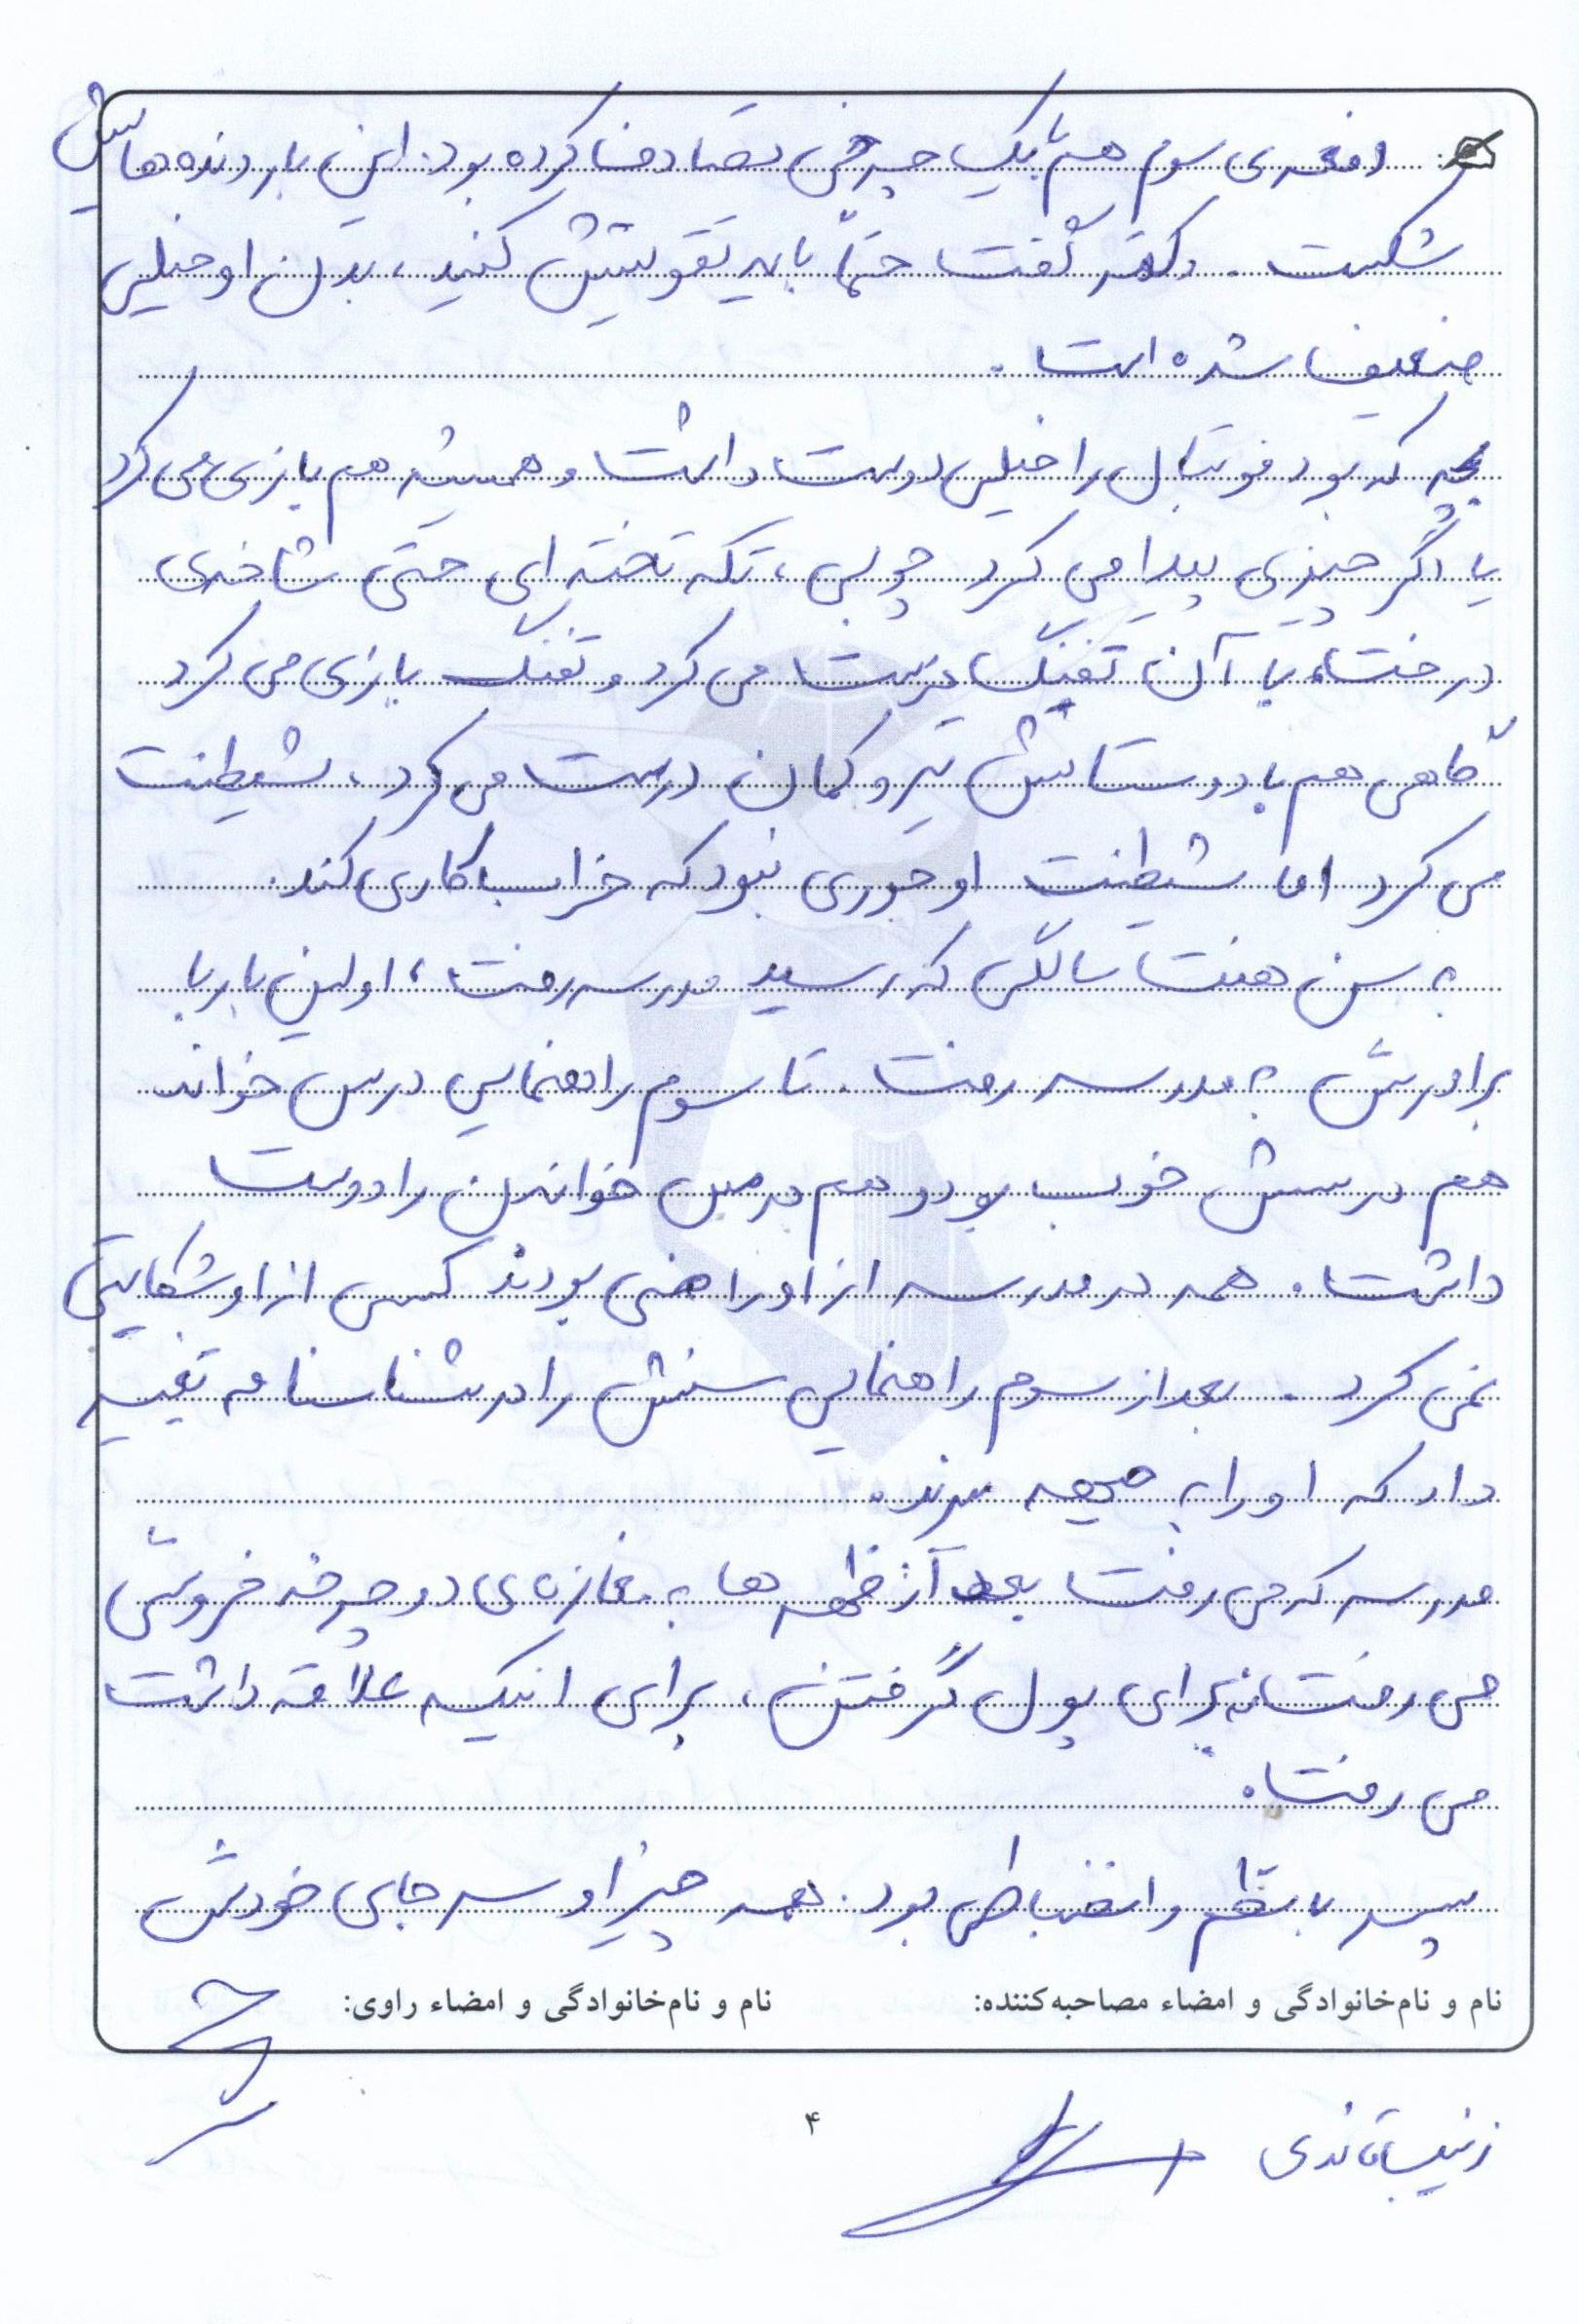 دفعه‌ی سوم هم با یک چرخی تصادف کرده بود. این بار دنده‌هایش
شکست. دکتر گفت حتماً باید تقویتش کنید، بدن او خیلی
ضعیف شده است.
بچه که بود فوتبال را خیلی دوست داشت و همیشه هم بازی می‌کرد
یا اگر چیزی پیدا می‌کرد چوبی، تکه تخته‌ای حتی شاخه‌ی
درخت، با آن تفنگ درست می‌کرد و تفنگ بازی می‌کرد
گاهی هم با دوستانش تیر و کمان درست می‌کرد، شیطنت
می‌کرد اما شیطنت او جوری نبود که خراب کاری کند.
به سن هفت سالگی که رسید مدرسه رفت، اولین بار با
برادرش به مدرسه رفت. تا سوم راهنمایی درس خواند
هم درسش خوب بود و هم درس خواندن را دوست
داشت. همه در مدرسه از او راضی بودند کسی از او شکایتی
نمی‌کرد. بعد از سوم راهنمایی سنش را در شناسنامه تغییر
داد که او را به جبهه ببرند.
مدرسه که می‌رفت بعد از ظهرها به مغازه‌ی دوچرخه فروشی
می‌رفت نه برای پول گرفتن، برای اینکه علاقه داشت
می‌رفت.
پسر با نظم و انضباطی بود. همه چیز او سر جای خودش
نام و نام‌خانوادگی و امضاء مصاحبه‌کننده: نام و نام‌خانوادگی و امضاء راوی:
زینب
۴